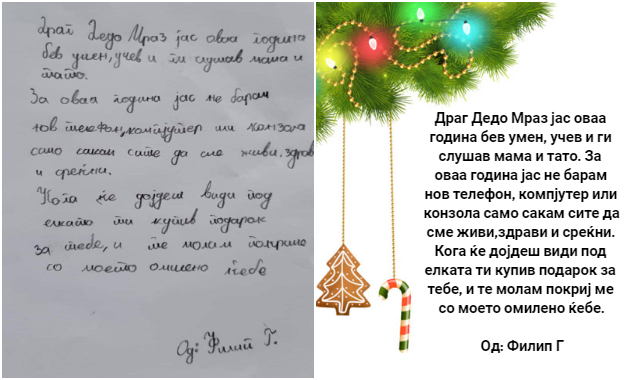 Драг Дедо Мраз јас оваа година
бев умен, учев и ги слушав мама и
тато.
За оваа година јас не барам
нов телефон, компјутер или конзола
само сакам сите да сме живи, здрави
и среќни.
Кога ќе дојдеш види под
елката ти купив подарок
за тебе, и те молам покриј ме
со моето омилено ќебе
Од: Филип Г.
Драг Дедо Мраз јас оваа
година бев умен, учев и ги
слушав мама и тато. За
оваа година јас не барам
нов телефон, компјутер или
конзола само сакам сите да
сме живи,здрави и среќни.
Кога ќе дојдеш види под
елката ти купив подарок за
тебе, и те молам покриј ме
со моето омилено ќебе.
Од: Филип Г